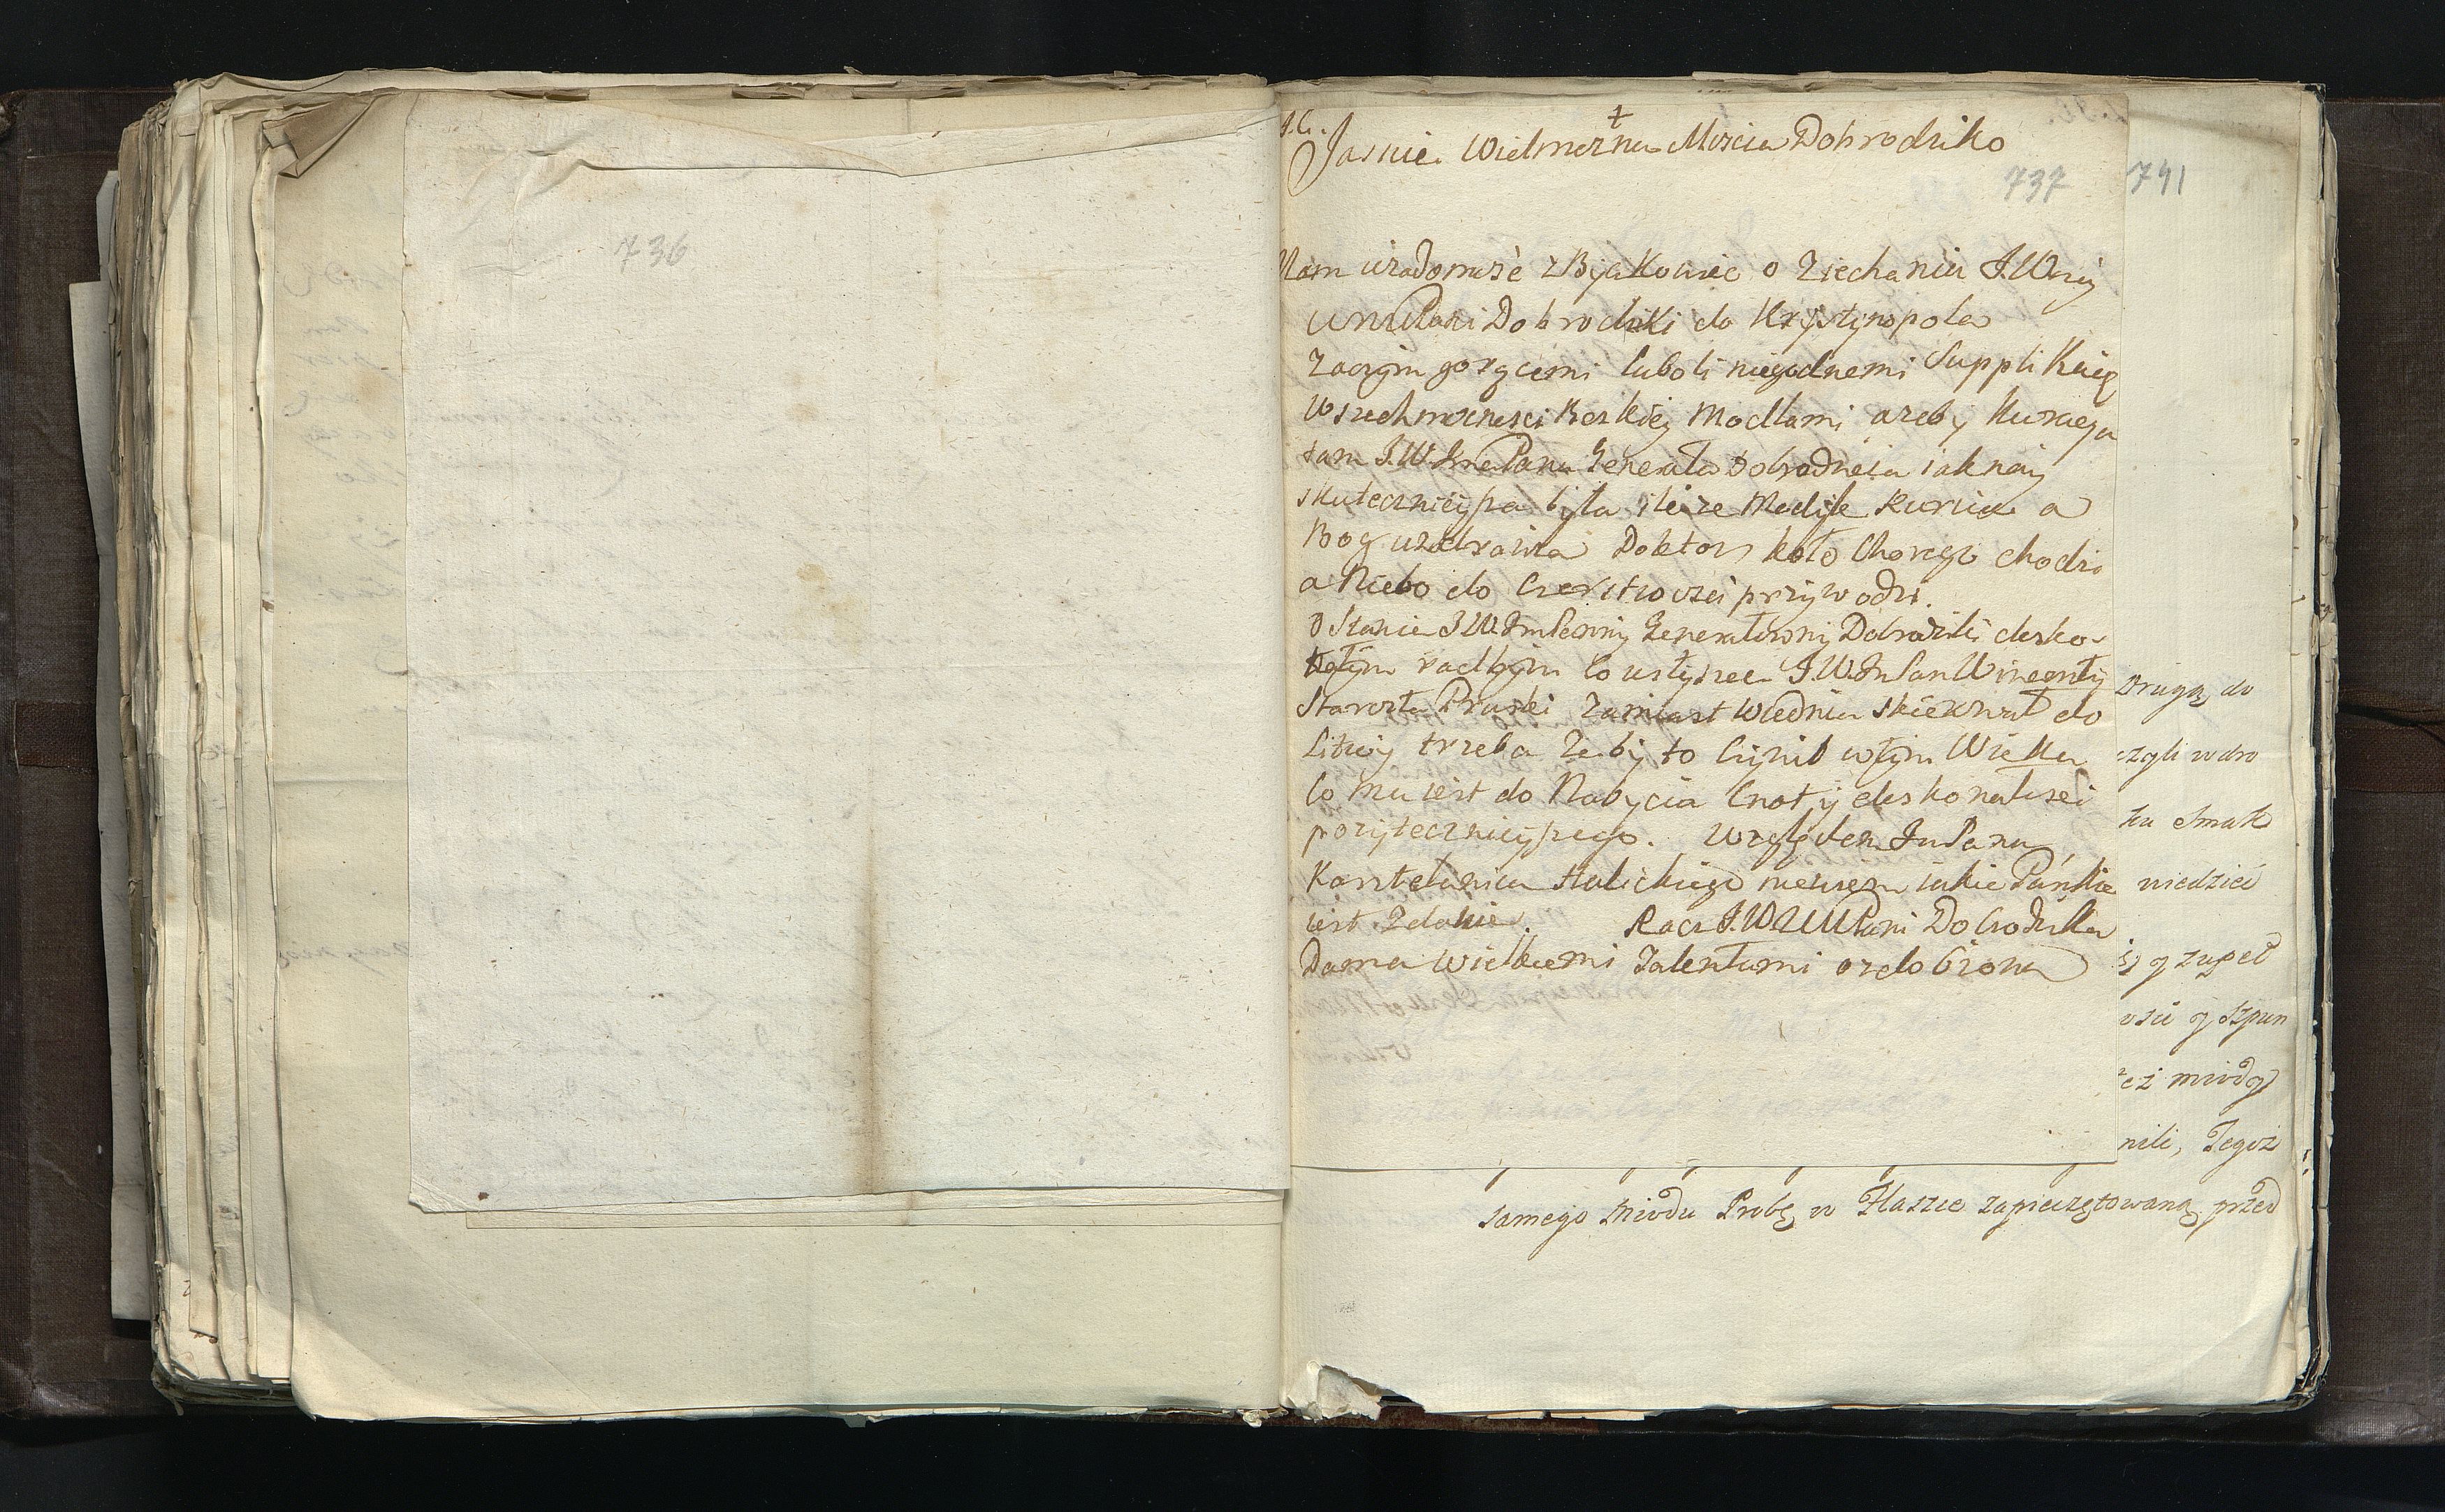 736
J.C. +
Jasnie Wielmozna Moscia Dobrodziko
737 741
Mam wiadomość z Byakowiec o Ziechaniu J.W.
WMPani Dobrodziki do Krystynopola
Zaczym gorącemi luboli niegodnemi Supplikuię
Wszechmocnosci Boskiey Modłami azeby Kuracya
tam J.W. Jmć Pana Generała Dobrodzieia iak nay
skutecznieysza była
Bog uzdrawia Doktor koło Chorego chodzi
a Niebo do Czerstwosci przywodzi.
O Stanie J.W. JmPanny Generałowny Dobrodziki dosko-
radbym co usłyszec J.W. Jm Pan Wincenty
Starosta Pruski Zamiast Wiednia skierował do
Litwy trzeba Zeby to Czynił w tym Wieku
Co mu iest do Nabycia Cnoty doskonałosci
pozytecznieyszego. Względem Jm Pana
Kasztelanica Halickiego niewiem iakie Pańskie
iest Zdanie. Racz J.W. WMPani Dobrodzika
Dama Wielkiemi Talentami ozdobiona
Drugą do
czyli w dro
ku Smak
niedzieć
y zupeł
y szpun
miodą
nili, Tegoż
samego Miodu Probę w Flaszce zapieczętowaną przed